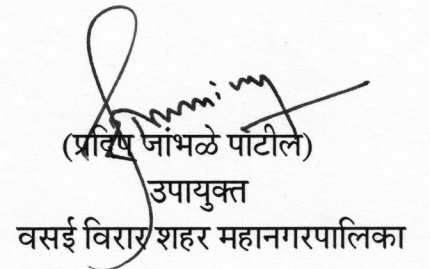 (प्रदिप जांभळे पाटील)
उपायुक्त
वसई विरार शहर महानगरपालिका